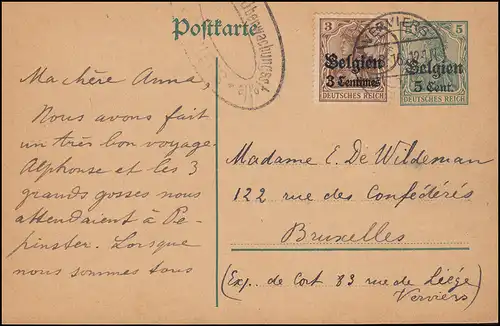 Postkarte
Überwachungsst
3
Belgien
3 Centimes
DEUTSCHES REICH
VERVIERS
5
Belgien
5 Cent.
DEUTSCHES REICH
Ma chère Anna,
Nous avons fait
un très bon voyage.
Alphonse et les 3
grands gosses nous
attendaient à Pe-
pinster. Lorsque
nous sommes tous
Madame E. De Wildeman
122 rue des Confédérés
Bruxelles
(Exp. de Cort 83 rue de Liége,
Verviers)